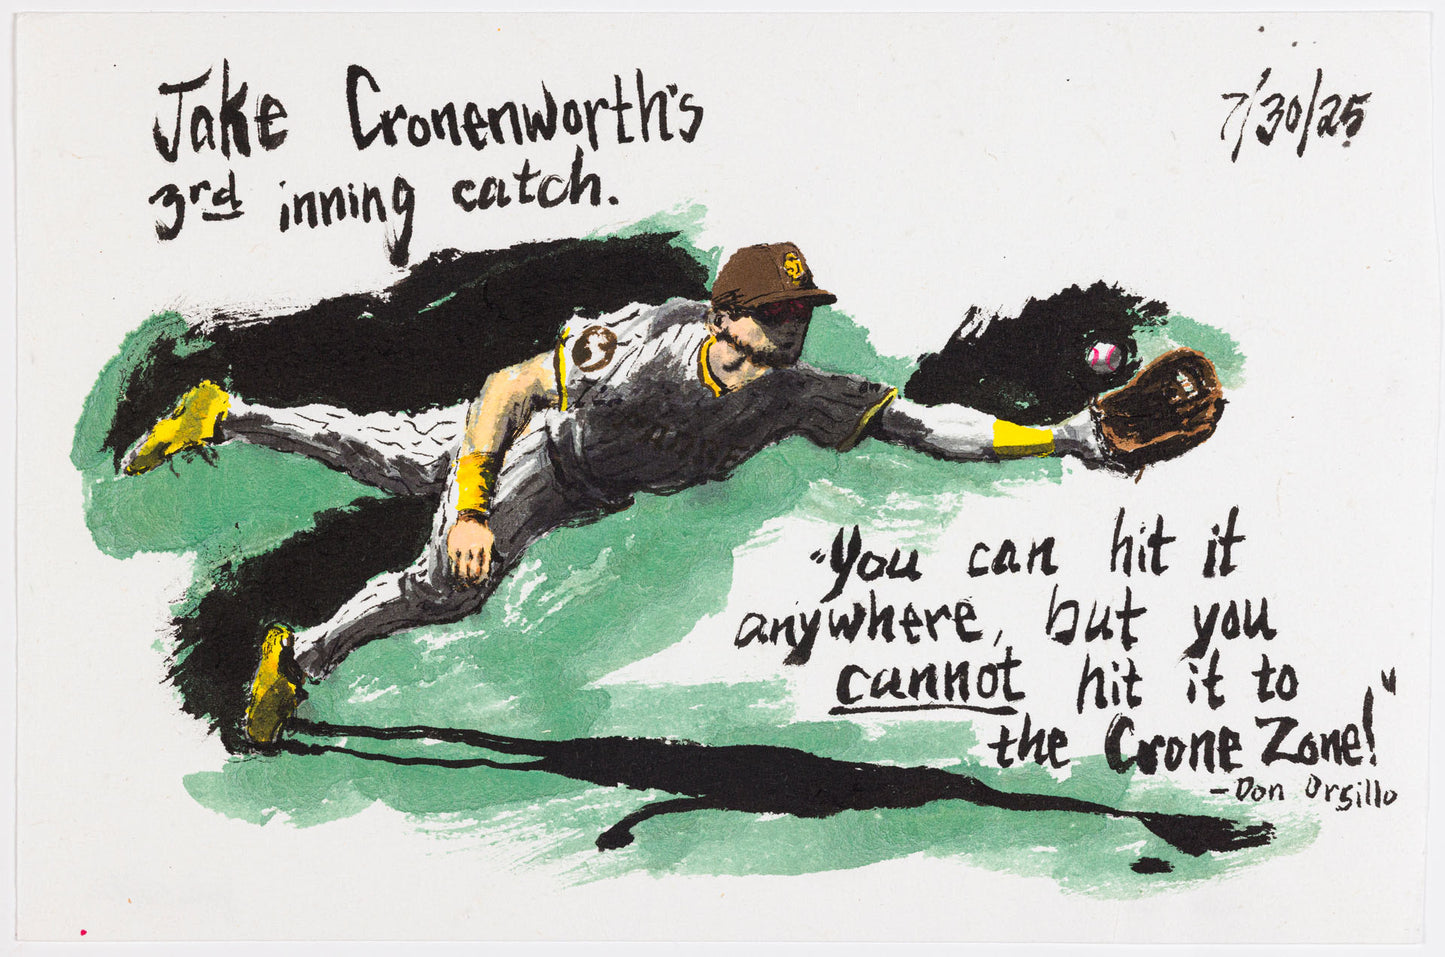 Jake Cronenworth's
3rd inning catch.
7/30/25
SD
"You can hit it
anywhere, but you
cannot hit it to
the Crone Zone!"
-Don Orsillo